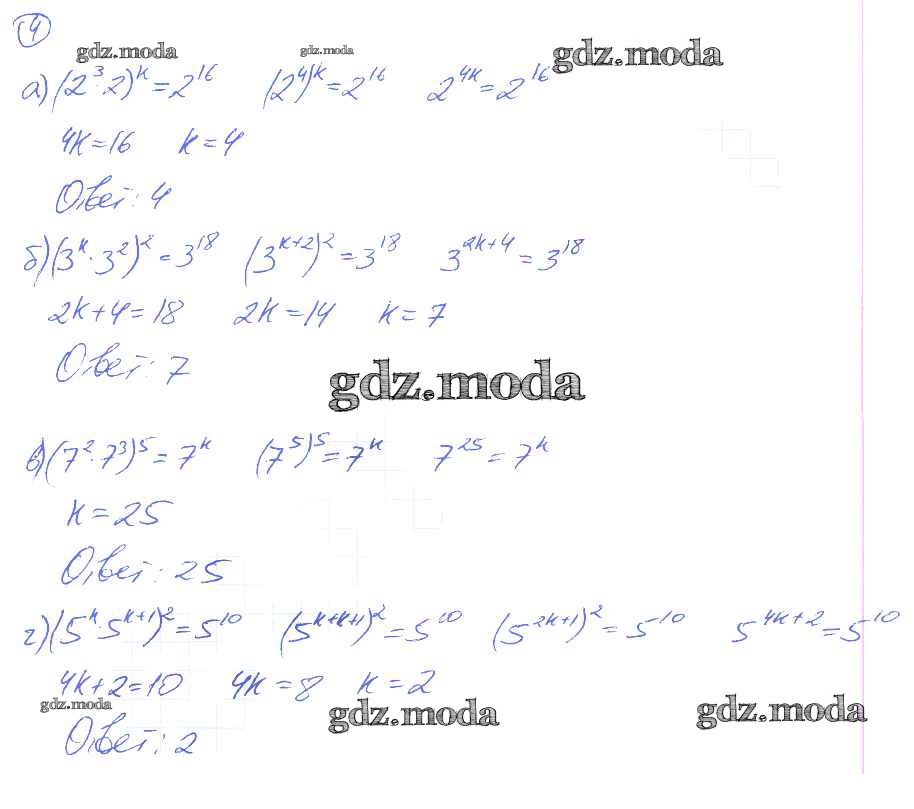 4
gdz.moda gdz.moda gdz.moda
а) (2³·2)ᵏ = 2¹⁶ (2⁴)ᵏ = 2¹⁶ 2⁴ᵏ = 2¹⁶
4k = 16 k = 4
Ответ: 4
б) (3ᵏ·3²)² = 3¹⁸ (3ᵏ⁺²)² = 3¹⁸ 3²ᵏ⁺⁴ = 3¹⁸
2k + 4 = 18 2k = 14 k = 7
Ответ: 7
gdz.moda
в) (7²·7³)⁵ = 7ᵏ (7⁵)⁵ = 7ᵏ 7²⁵ = 7ᵏ
k = 25
Ответ: 25
г) (5ᵏ·5ᵏ⁺¹)² = 5¹⁰ (5ᵏ⁺ᵏ⁺¹)² = 5¹⁰ (5²ᵏ⁺¹)² = 5¹⁰ 5⁴ᵏ⁺² = 5¹⁰
4k + 2 = 10 4k = 8 k = 2
gdz.moda gdz.moda gdz.moda
Ответ: 2